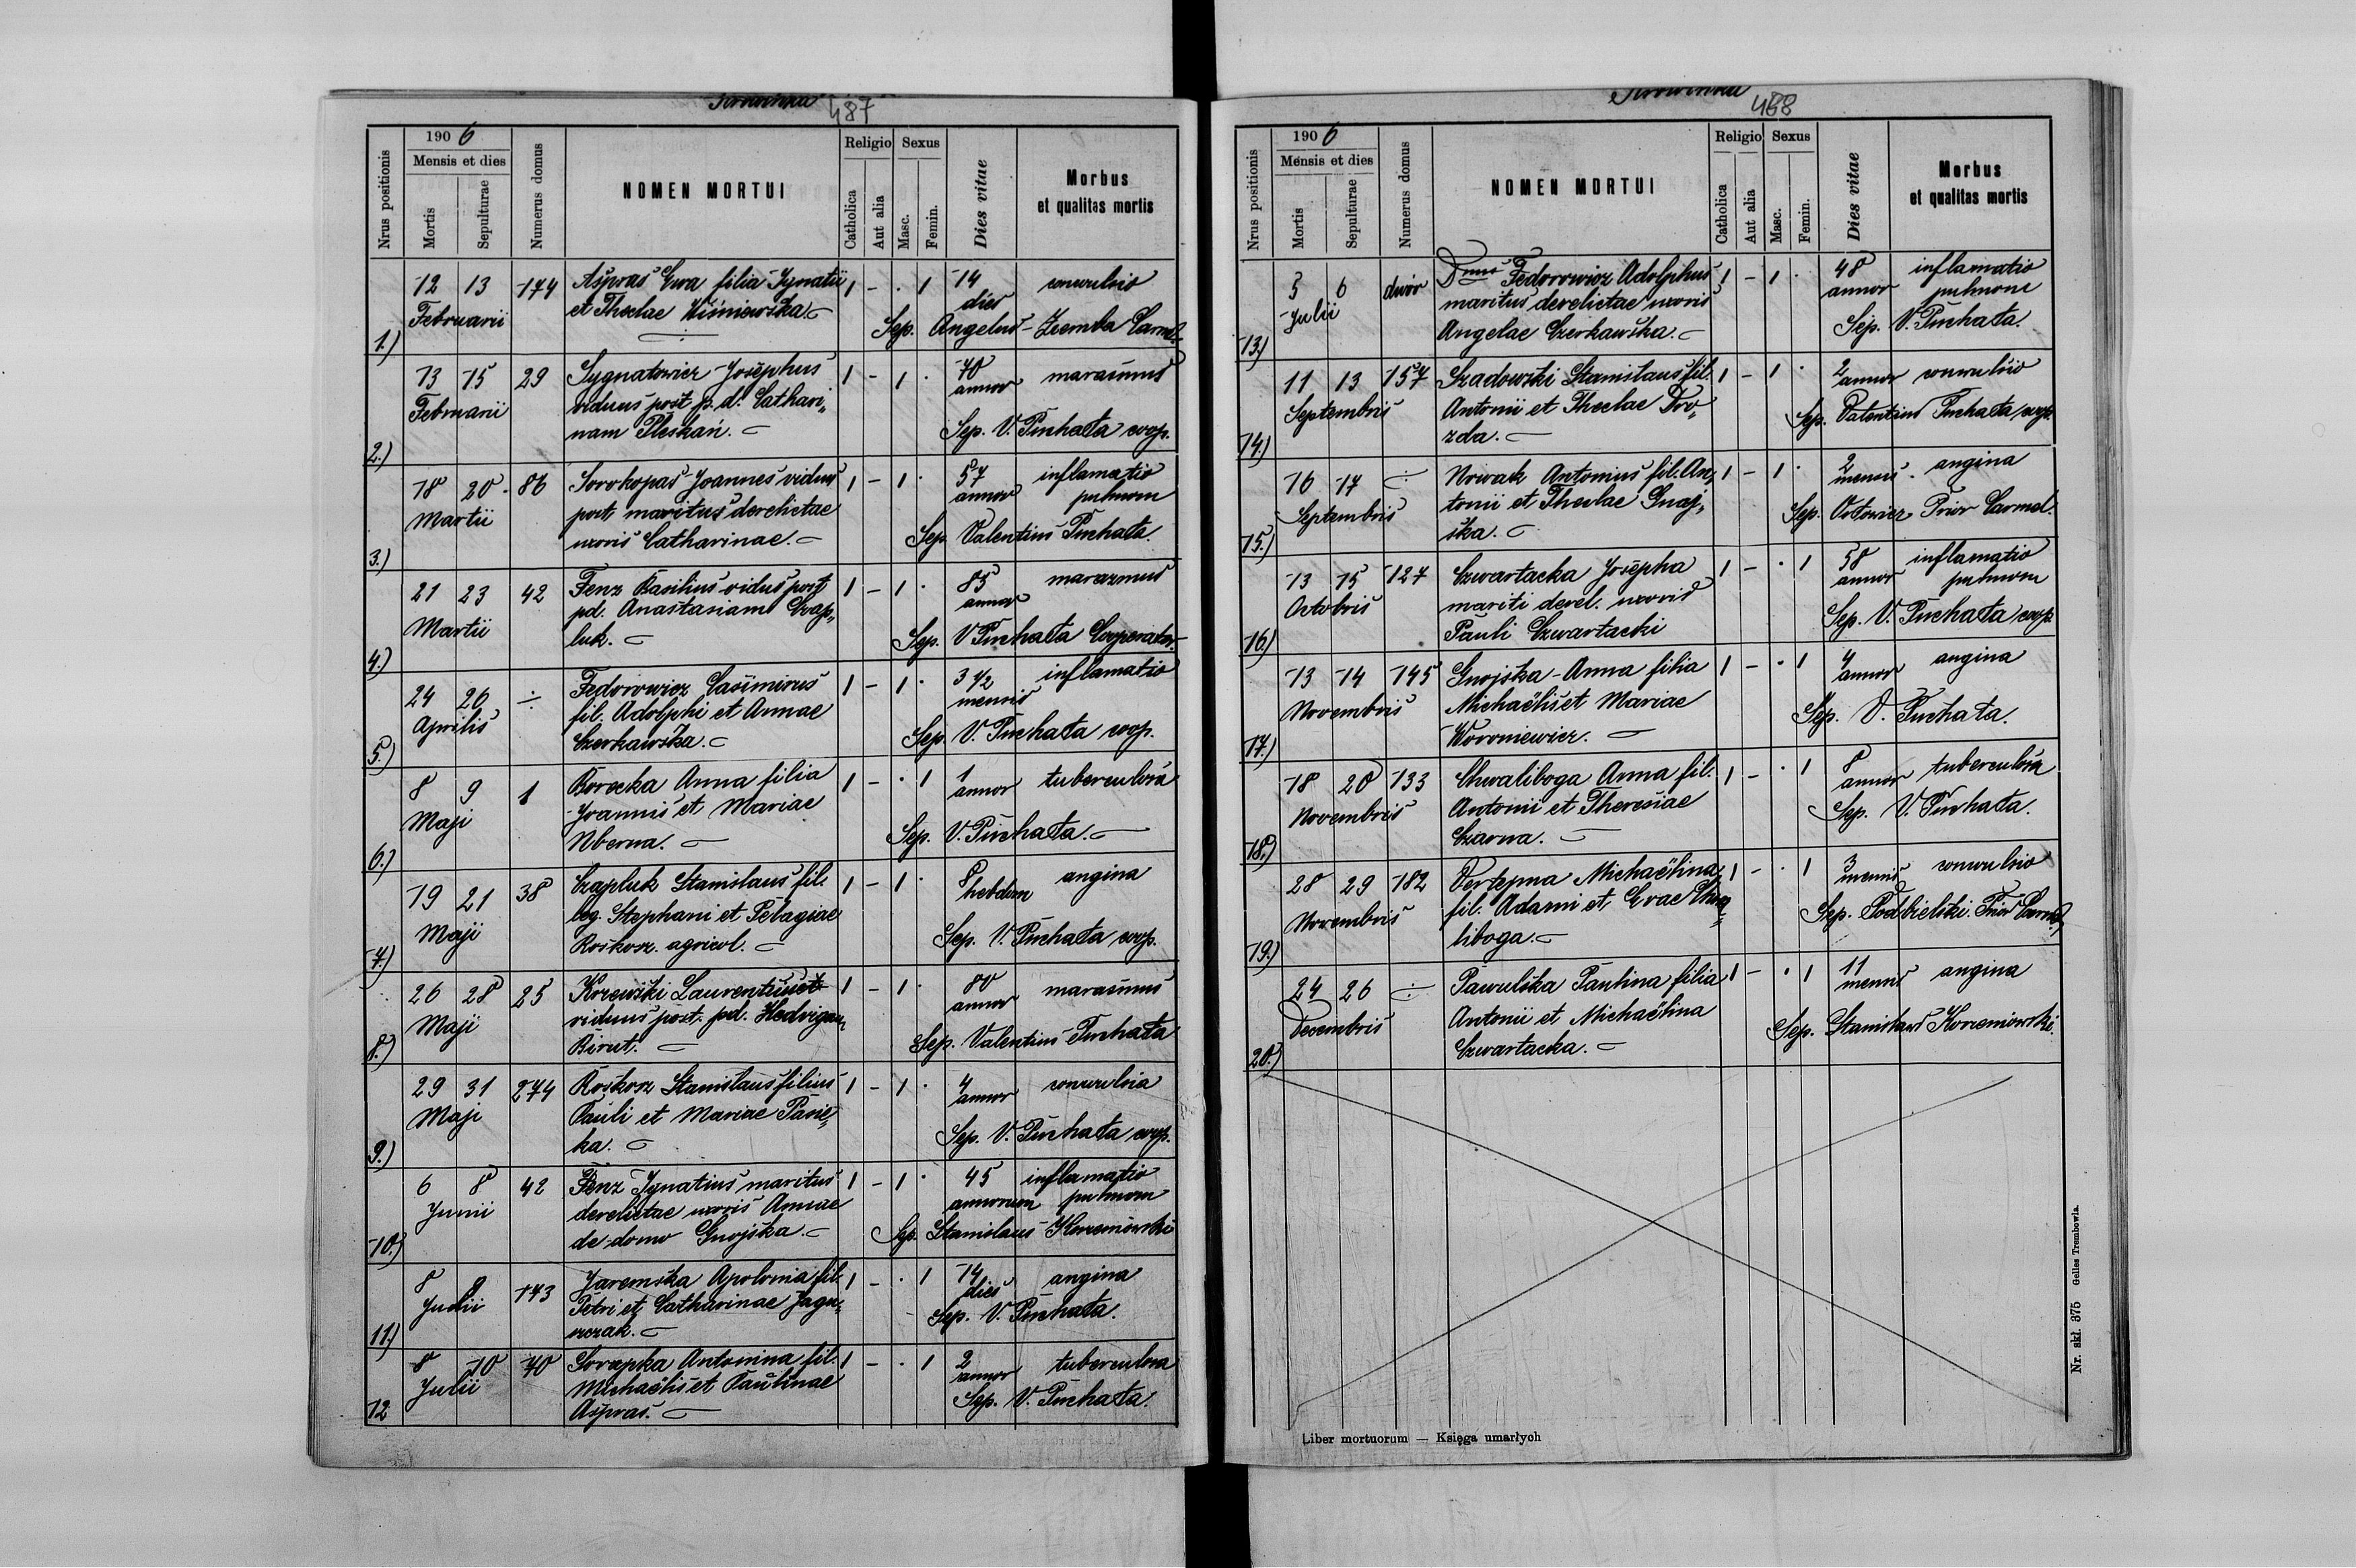 487
1906
Nrus positionis
Mensis et dies
Mortis
Sepulturae
Numerus domus
NOMEN MORTUI
Religio
Catholica
Aut alia
Sexus
Masc.
Femin.
Dies vitae
Morbus
et qualitas mortis
1.) 12 13 174 Aspras Ewa filia Ignatii 1 - . 1 14 convulsio
Februarii et Theclae Wiśniewska. dies
Sep. Angelus Carmel.
2.) 13 15 29 Sygnatowicz Josephus 1 - 1 . 70 marasmus
Februarii viduus post p.d. Cathari„ annor
nam Pleskań. Sep. V. Puchała coop.
3.) 18 20. 86 Sorokopas Joannes vidus 1 - 1 . 57 inflamatio
Martii post maritus derelictae annor pulmon
uxoris Catharinae. Sep. Valentius Puchała.
4.) 21 23 42 Fenz Basilius vidus post 1 - 1 . 85 marazmus
Martii pd. Anastasiam Czap„ annor
luk. Sep. V Puchała Cooperator.
5.) 24 26 ÷ Fedorowicz Casimirus 1 - 1 . 3 1/2 inflamatio
Aprilis fil. Adolphi et Annae mensis
Czerkawska. Sep. V. Puchała coop.
6.) 8 9 1 Borecka Anna filia 1 - . 1 1 tuberculosa
Maji Joannis et Mariae annor
Nberna. Sep. V. Puchała.
7.) 19 21 38 Czapluk Stanislaus fil. 1 - 1 . 8 angina
Maji leg. Stephani et Pelagiae hebdom
Roskosz. agricol. Sep. V. Puchała coop.
8.) 26 28 25 Krzewski Laurentius 1 - 1 . 80 marasmus
Maji viduus post. pd. Hedvigam annor
Birut. Sep. Valentius Puchała
9.) 29 31 274 Roskosz Stanislaus filius 1 - 1 . 4 convulsia
Maji Pauli et Mariae Pasie„ annor
ka. Sep. V. Puchała coop.
10.) 6 8 42 Fenz Ignatius maritus 1 - 1 . 45 inflamatio
Juni derelictae uxoris Annae annorum pulmon
de domo Gnojska. Sep. Stanislaus Korzeniowski
11.) 8 9 143 Jaremska Apolonia fil. 1 - . 1 14 angina
Julii Petri et Catharinae Jagu„ dies
szczak. Sep. V. Puchała.
12 8 10 70 Antonina fil. 1 - . 1 2 tuberculosa
Julii Michaëlis et Paulinae annor
Aspras. Sep. V. Puchała.
488
1906
Nrus positionis
Mensis et dies
Mortis
Sepulturae
Numerus domus
NOMEN MORTUI
Religio
Catholica
Aut alia
Sexus
Masc.
Femin.
Dies vitae
Morbus
et qualitas mortis
13.) 5 6 dwór Dnus Fedorowicz Adolphus 1 - 1 . 48 inflamatio
Julii maritus derelictae uxoris annor pulmone
Angelae Czerkawska. Sep. V. Puchała.
14.) 11 13 157 Szadowski Stanislaus fil. 1 - 1 . 2 convulsio
Septembris Antonii et Theclae Dro„ annor
zda. Sep. Valentius Puchała coop.
15.) 16 17 ÷ Nowak Antonius fil. An„ 1 - 1 . 2 angina
Septembris tonii et Theclae Gnoj„ mensis.
ska. Sep. Prior Carmel.
16.) 13 15 127 Czwartacka Josepha 1 - . 1 58 inflamatio
Octobris mariti derel. uxoris annor pulmom
Pauli Czwartacki Sep. V. Puchała coop.
17.) 13 14 145 Gnojska Anna filia 1 - . 1 4 angina
Novembris Michaëlis et Mariae annor
Woroniewicz. Sep. V. Puchała.
18.) 18 20 133 Chwaliboga Anna fil. 1 - . 1 8 tuberculosa
Novembris Antonii et Theresiae annor
Czarna. Sep. V. Puchała.
19.) 28 29 182 Vertepna Michaëlina 1 - . 1 3 convulsio
Novembris fil. Adami et Evae Chwa„ mensis
liboga. Sep. Podbielski. Prior Carmel.
20.) 24 26 ÷ Pawulska Paulina filia 1 - . 1 11 angina
Decembris Antonii et Michaëlina mensis
Czwartacka. Sep. Stanislaus Korzeniowski.
Liber mortuorum — Księga umarłych
Nr. skł. 375 Gelles Trembowla.